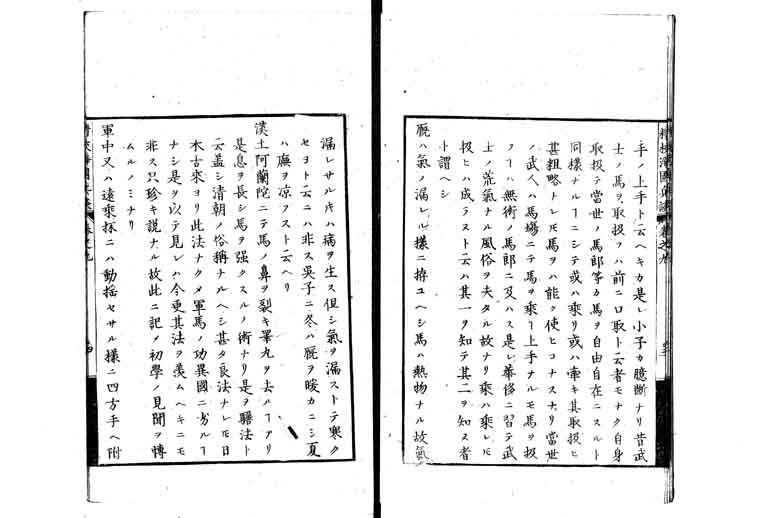 手ノ上手ト云ヘキカ是レ小子カ臆断ナリ昔武
士ノ馬ヲ取扱フハ前ニ口取ト云者モナク自身
取扱テ當世ノ馬郎等カ馬ヲ自由自在ニスルト
同樣ナルヿニシテ或ハ乘リ或ハ牽キ其取扱ヒ
甚粗略トレ𪜈馬ヲハ能ク使ヒコナスナリ當世
ノ武人ハ馬場ニテ馬ヲ乘ヿ上手ナルモ馬ヲ扱
フヿハ無術ノ馬郎ニ及ハス是レ華侈ニ習テ武
士ノ荒氣ナル風俗ヲ失タル故ナリ乘ハ乘レ𪜈
扱ヒハ成テスト云ハ其一ヲ知テ其二ヲ知ス者
ト謂ヘシ
厩ハ氣ノ漏レル樣ニ拵ユヘシ馬ハ熱物ナル故氣
漏レサル𪜈ハ病ヲ生ス但シ氣ヲ漏ストテ寒ク
セヨト云ニハ非ス吳子ニ冬ハ厩ヲ暖カニシ夏
ハ廡ヲ凉フスト云ヘリ
漢土阿蘭陀ニテ馬ノ鼻ヲ裂キ睾丸ヲ去ルヿアリ
是息ヲ長シ馬ヲ强クスルノ術ナリ是ヲ騸法ト
云盖シ清朝ノ俗稱ナルヘシ甚タ良法ナレ𪜈日
本古來ヨリ此法ナクメ軍馬ノ功異國ニ劣ルヿ
ナシ是ヲ以テ見レハ今更其法ヲ羨ムヘキニモ
非ス只珍キ說ナル故此ニ記メ初學ノ見聞ヲ慱
ムルノミナリ
軍中又ハ遠乘抔ニハ動搖セサル樣ニ四方手ヘ附